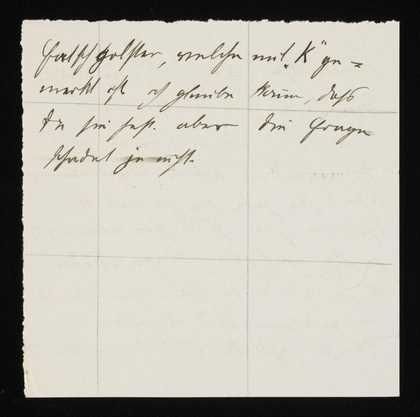 welche mit „K" ge=
merkt ist ich glaube kaum, dass
Du sie hast. aber die Frage
schadet ja nicht.